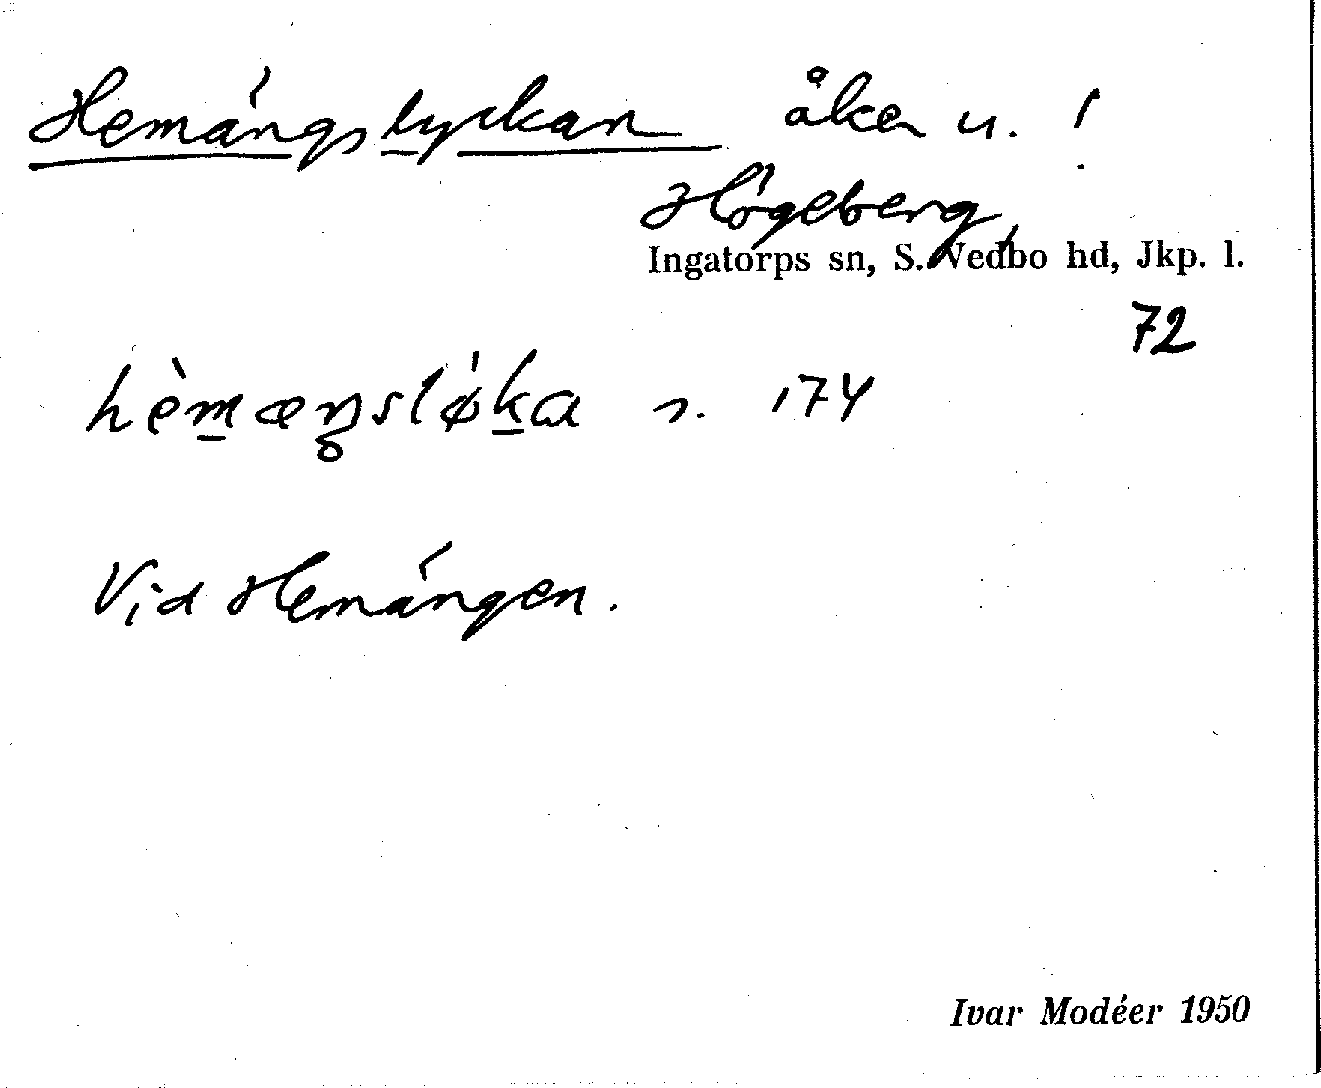 Hemängslyckan åker u. !
Högeberg,
Ingatorps sn, S. Vedbo hd, Jkp. l.
72
hèmæŋsløka n. 174
Vid Hemängen.
Ivar Modéer 1950